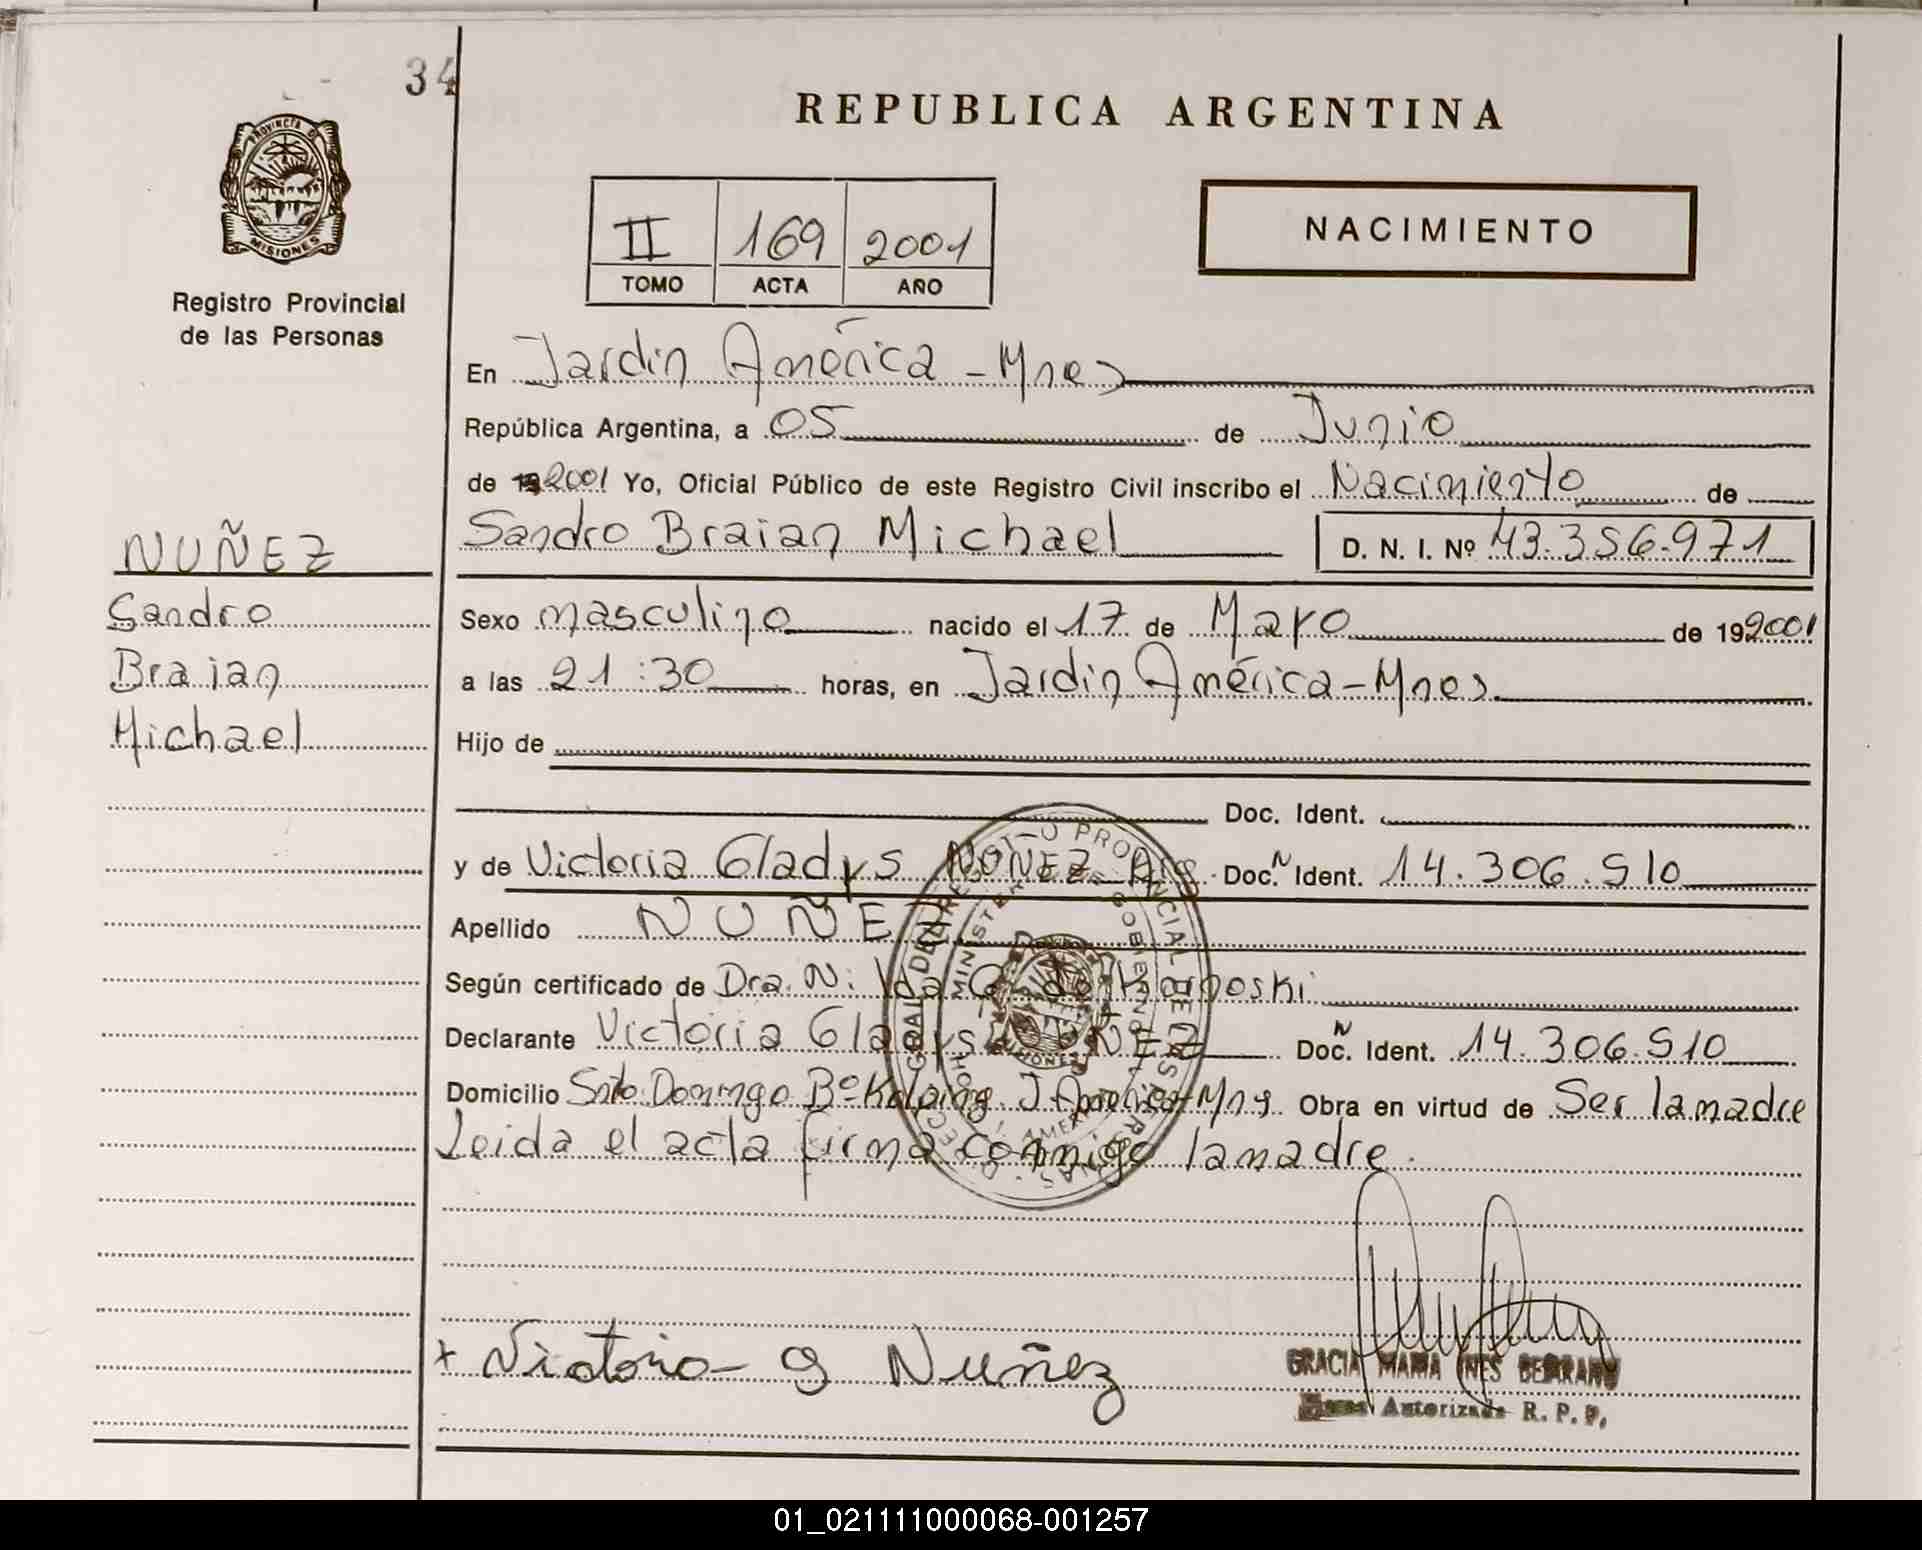 34
REPUBLICA ARGENTINA
PROVINCIA DE
MISIONES
Registro Provincial
de las Personas
NACIMIENTO
II 169 2001
TOMO ACTA AÑO
En Jardin América - Mnes
República Argentina, a 05 de Junio
de 19 2001 Yo, Oficial Público de este Registro Civil inscribo el Nacimiento de
Sandro Braian Michael D. N. I. Nº 43.356.971
NUÑEZ
Sandro
Braian
Michael
Sexo masculino nacido el 17 de Mayo de 19 2001
a las 21:30 horas, en Jardin América - Mnes.
Hijo de
Doc. Ident.
y de Victoria Gladys NUÑEZ Arg. Doc. N Ident. 14.306.510
Apellido NUÑEZ
Según certificado de Dra. N: Ida de
Declarante Victoria Gladys NUÑEZ Doc. N Ident. 14.306.510
Domicilio Snto. Domingo Bº Kolping J. América Mns. Obra en virtud de Ser la madre
Leida el acta firma conmigo la madre.
+ Victoria G Nuñez
GRACIA MARIA INES
Autorizada R. P. P.
01_021111000068-001257